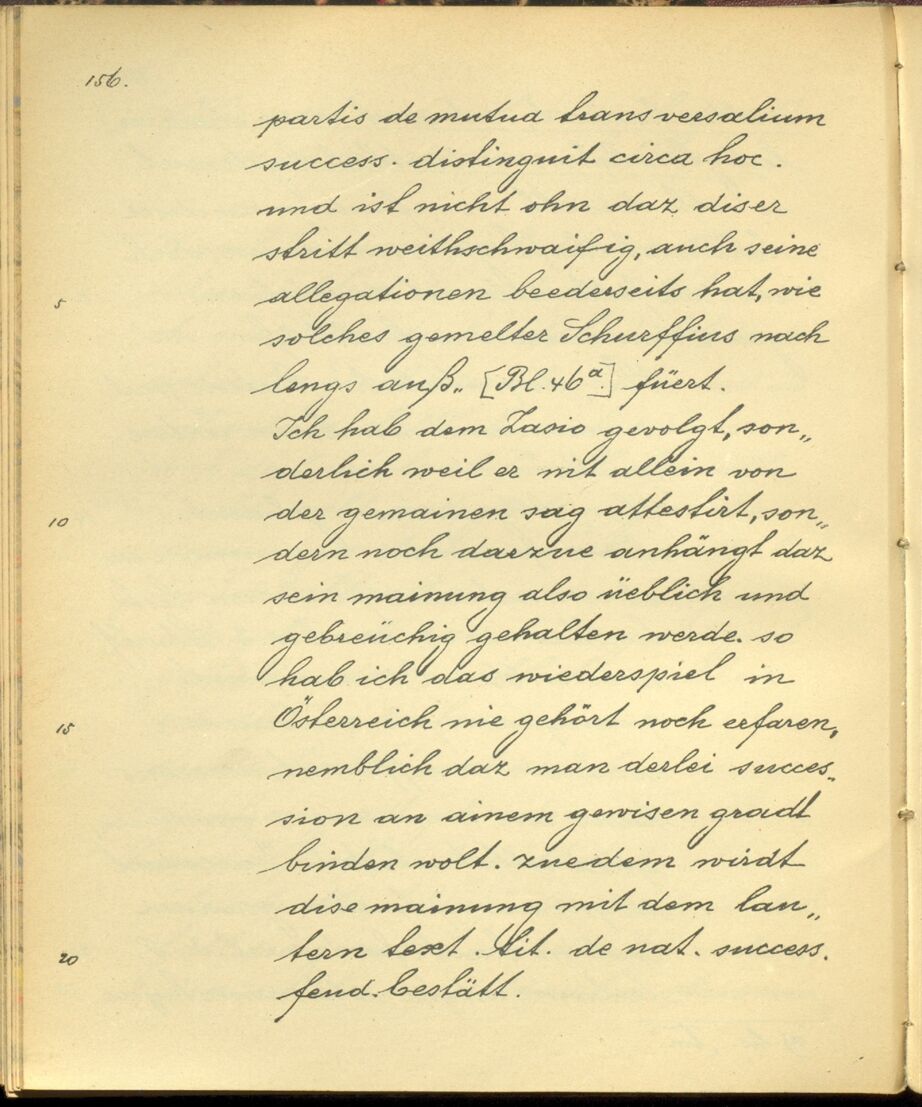 156.
partis de mutua transversalium
success. distinguit circa hoc.
und ist nicht ohn daz diser
stritt weithschwaifig, auch seine
5 allegationen beederseits hat, wie
solches gemelter Schurffius nach
lengs auß„ [Bl. 46a.] füert.
Ich hab dem Zasio gevolgt, son„
derlich weil er nit allein von
10 der gemainen sag attestirt, son„
dern noch darzue anhängt daz
sein mainung also üeblich und
gebreüchig gehalten werde. so
hab ich das wiederspiel in
15 Österreich nie gehört noch erfaren,
nemblich daz man derlei succes„
sion an ainem gewisen gradt
binden wolt. zuedem wirdt
dise mainung mit dem lau„
20 tern text. tit. de nat. success.
feud. bestätt.